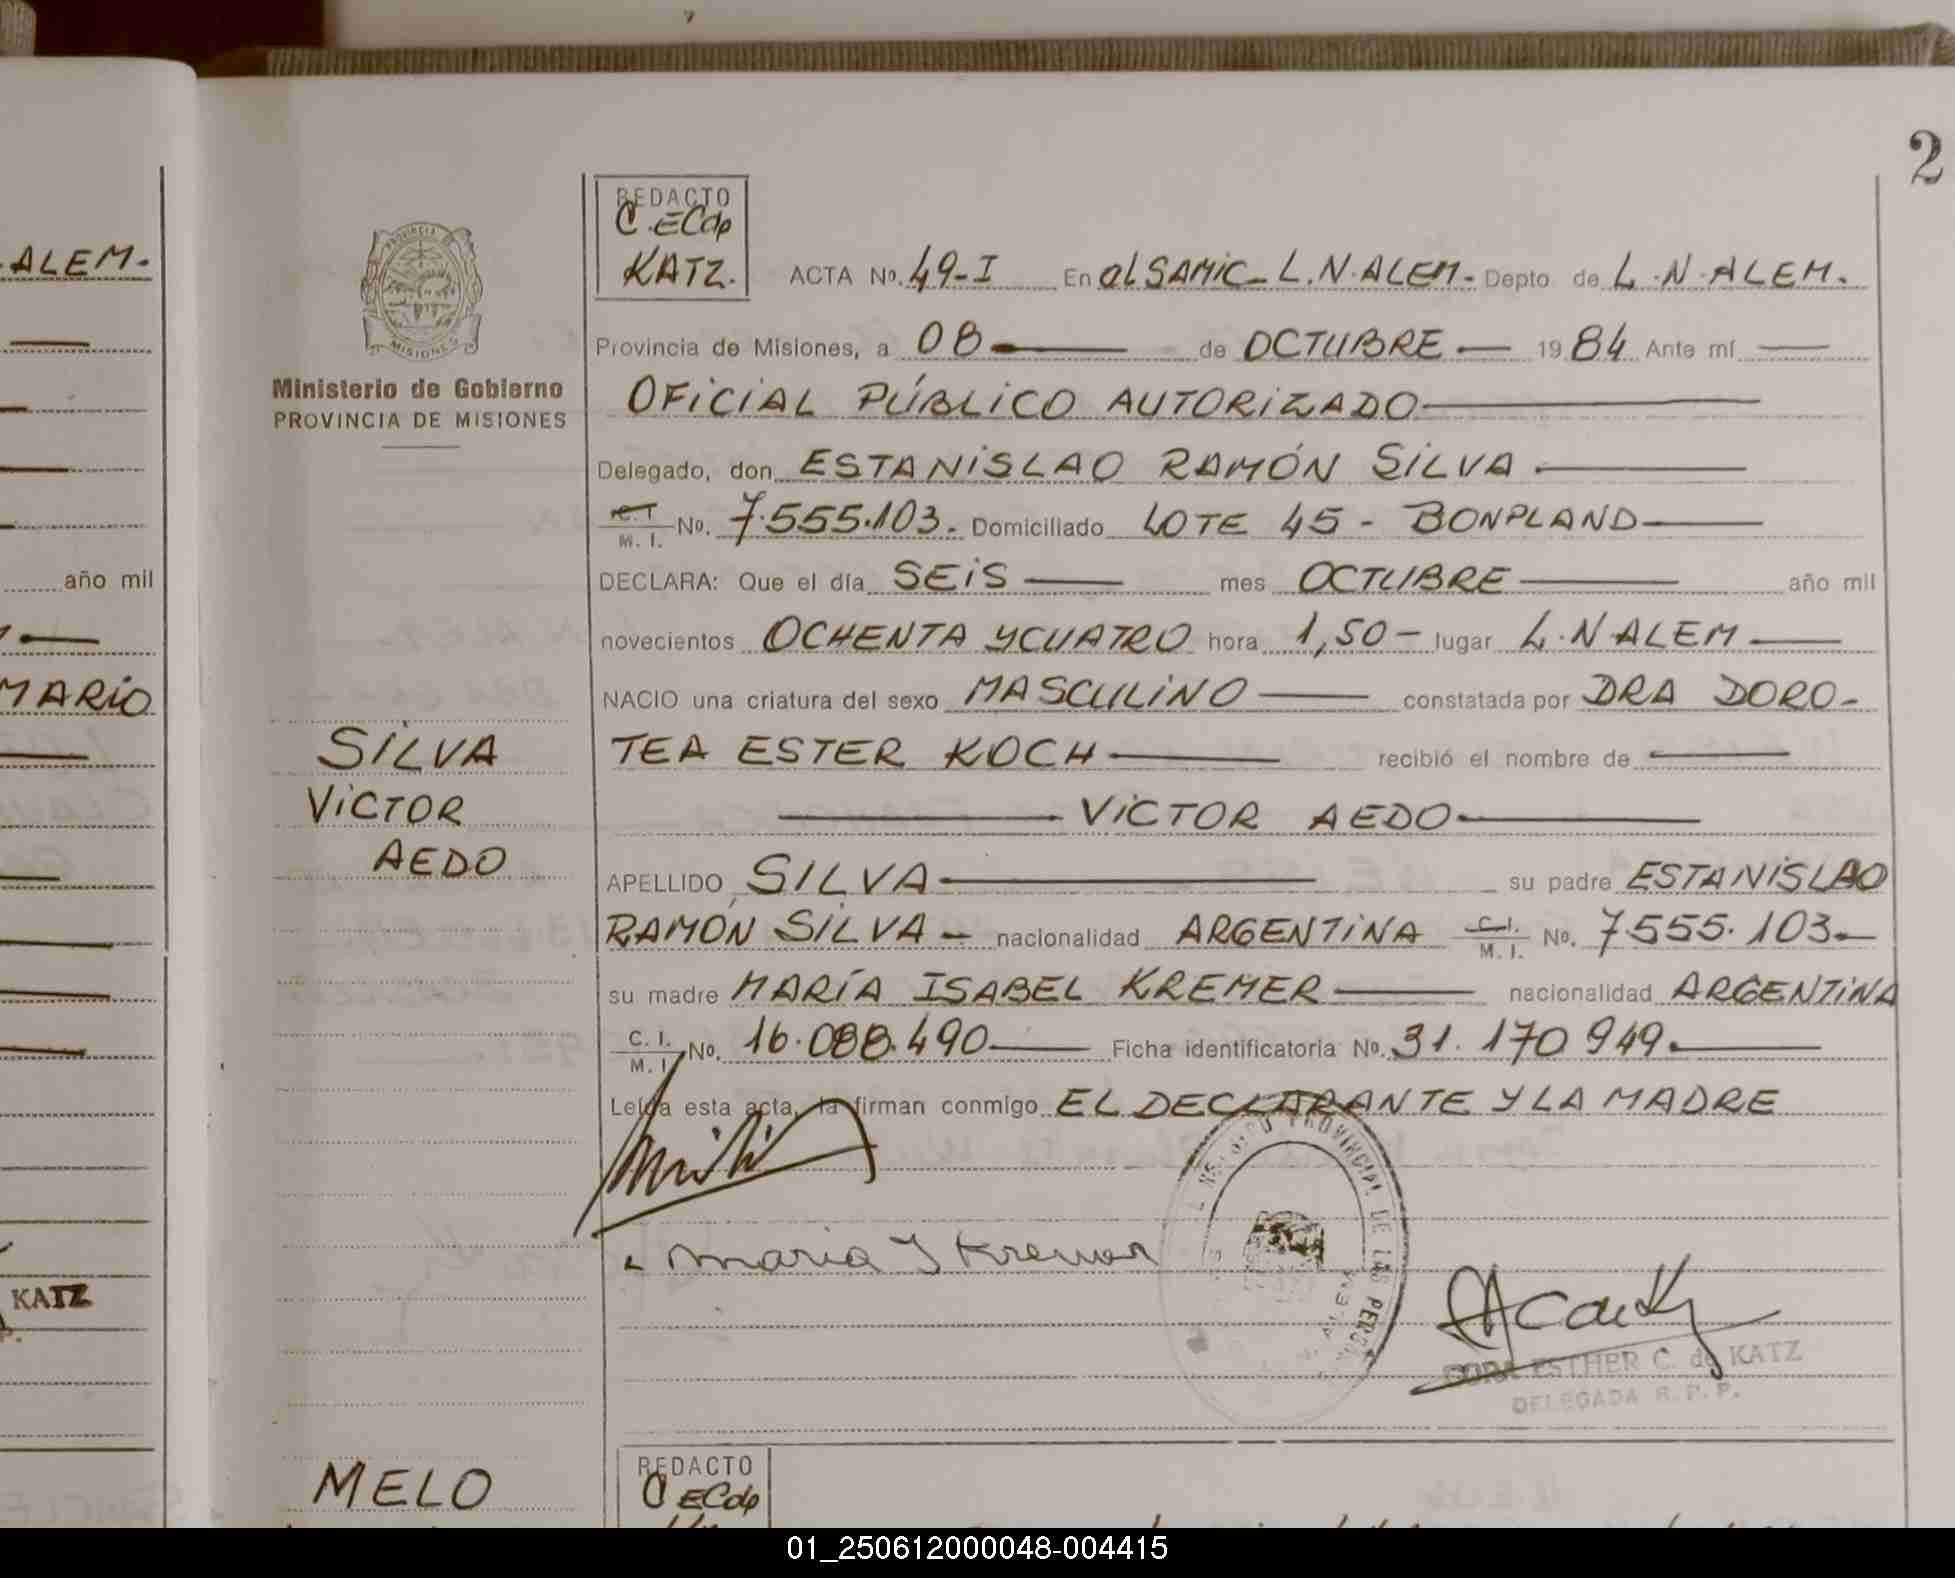 2
ALEM.
año mil
MARIO
KATZ
PROVINCIA DE
MISIONES
Ministerio de Gobierno
PROVINCIA DE MISIONES
SILVA
VICTOR
AEDO
MELO
REDACTO
C. ECdp
KATZ.
ACTA No. 49-I En al SAMIC - L.N.ALEM. Depto de L.N.ALEM.
Provincia de Misiones, a 08 de OCTUBRE 1984 Ante mí
OFICIAL PÚBLICO AUTORIZADO
Delegado, don ESTANISLAO RAMÓN SILVA
C.I. M. I. No. 7.555.103. Domiciliado LOTE 45 - BONPLAND
DECLARA: Que el día SEIS mes OCTUBRE año mil
novecientos OCHENTA Y CUATRO hora 1,50 - lugar L.N ALEM
NACIO una criatura del sexo MASCULINO constatada por DRA DORO-
TEA ESTER KOCH recibió el nombre de
VICTOR AEDO
APELLIDO SILVA su padre ESTANISLAO
RAMÓN SILVA - nacionalidad ARGENTINA C.I. M. I. No. 7.555.103.
su madre MARÍA ISABEL KREMER nacionalidad ARGENTINA
C. I. M. I. No. 16.088.490 Ficha identificatoria No. 31.170 949.
Leída esta acta, la firman conmigo EL DECLARANTE Y LA MADRE
PROVINCIAL DE LAS PERSONAS
ALEM
Maria I Kremer
CORA ESTHER C. de KATZ
DELEGADA R. P. P.
REDACTO
C ECdp
01_250612000048-004415